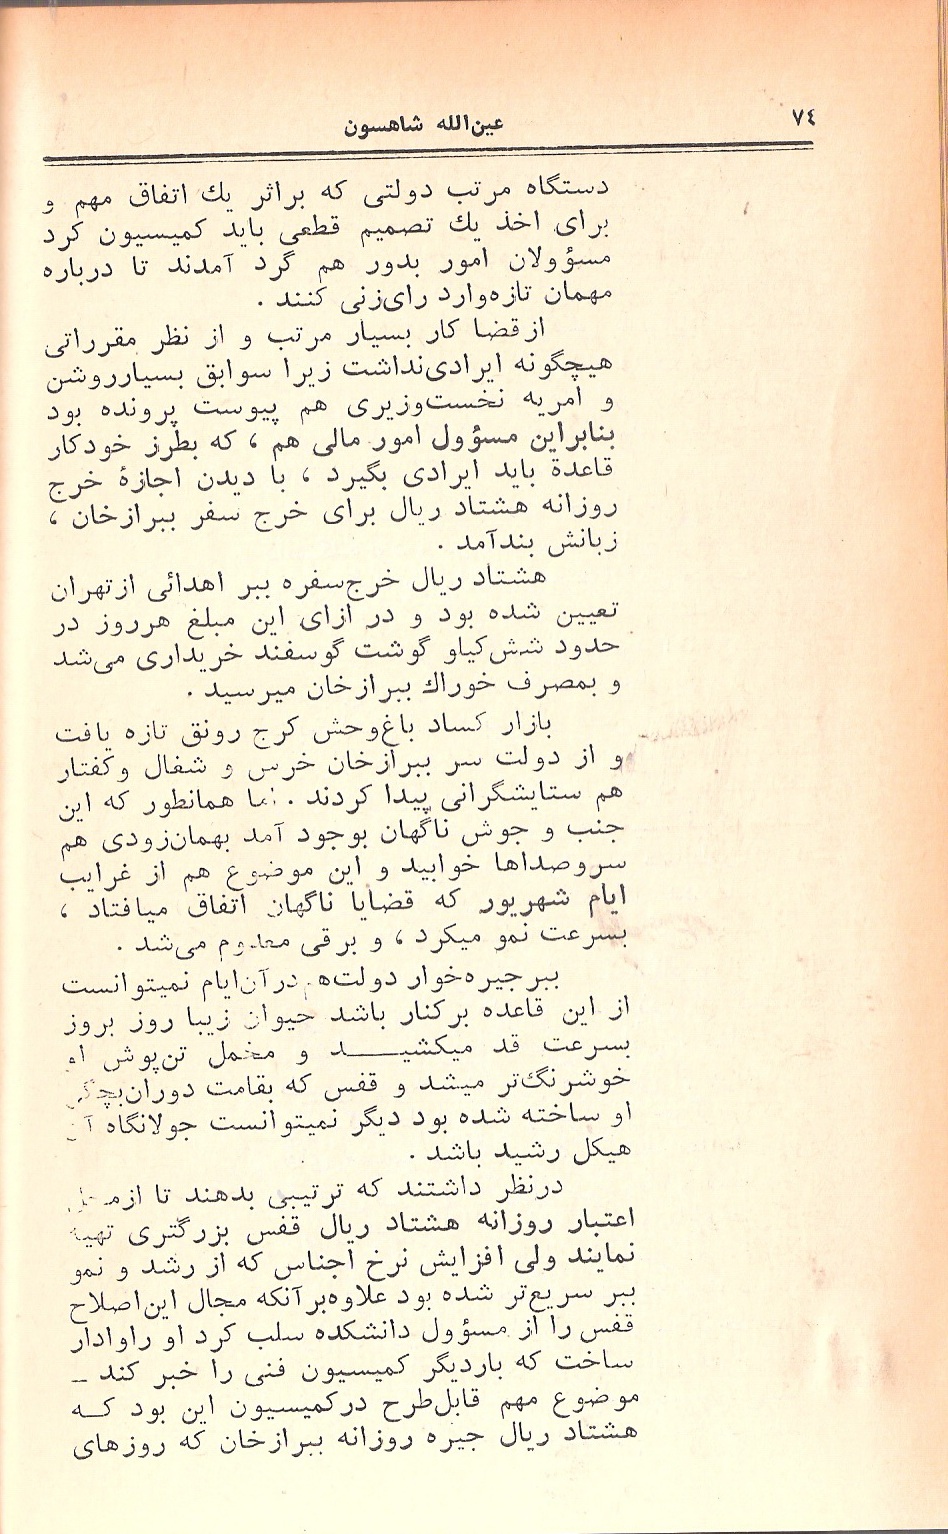 ۷٤
عین‌الله شاهسون
دستگاه مرتب دولتی که براثر یك اتفاق مهم و
برای اخذ یك تصمیم قطعی باید کمیسیون کرد
مسؤولان امور بدور هم گرد آمدند تا درباره
مهمان تازه‌وارد رای‌زنی کنند .
ازقضا کار بسیار مرتب و از نظر مقرراتی
هیچگونه ایرادی‌نداشت زیرا سوابق بسیارروشن
و امریه نخست‌وزیری هم پیوست پرونده بود
بنابراین مسؤول امور مالی هم ، که بطرز خودکار
قاعدة باید ایرادی بگیرد ، با دیدن اجازهٔ خرج
روزانه هشتاد ریال برای خرج سفر ببرازخان ،
زبانش بندآمد .
هشتاد ریال خرج‌سفره ببر اهدائی ازتهران
تعیین شده بود و در ازای این مبلغ هرروز در
حدود شش‌کیلو گوشت گوسفند خریداری می‌شد
و بمصرف خوراك ببرازخان میرسید .
بازار کساد باغ‌وحش کرج رونق تازه یافت
و از دولت سر ببرازخان خرس و شغال وکفتار
هم ستایشگرانی پیدا کردند . اما همانطور که این
جنب و جوش ناگهان بوجود آمد بهمان‌زودی هم
سروصداها خوابید و این موضوع هم از غرایب
ایام شهریور که قضایا ناگهان اتفاق میافتاد ،
بسرعت نمو میکرد ، و برقی معدوم می‌شد .
ببرجیره‌خوار دولت‌هم درآن‌ایام نمیتوانست
از این قاعده برکنار باشد حیوان زیبا روز بروز
بسرعت قد میکشیـــد و مخمل تن‌پوش او
خوشرنگ‌تر میشد و قفس که بقامت دوران‌بچگی
او ساخته شده بود دیگر نمیتوانست جولانگاه آن
هیکل رشید باشد .
درنظر داشتند که ترتیبی بدهند تا ازمحل
اعتبار روزانه هشتاد ریال قفس بزرگتری تهیه
نمایند ولی افزایش نرخ اجناس که از رشد و نمو
ببر سریع‌تر شده بود علاوه‌برآنکه مجال این‌اصلاح
قفس را از مسؤول دانشکده سلب کرد او راوادار
ساخت که باردیگر کمیسیون فنی را خبر کند ـ
موضوع مهم قابل‌طرح درکمیسیون این بود کـه
هشتاد ریال جیره روزانه ببرازخان که روزهای